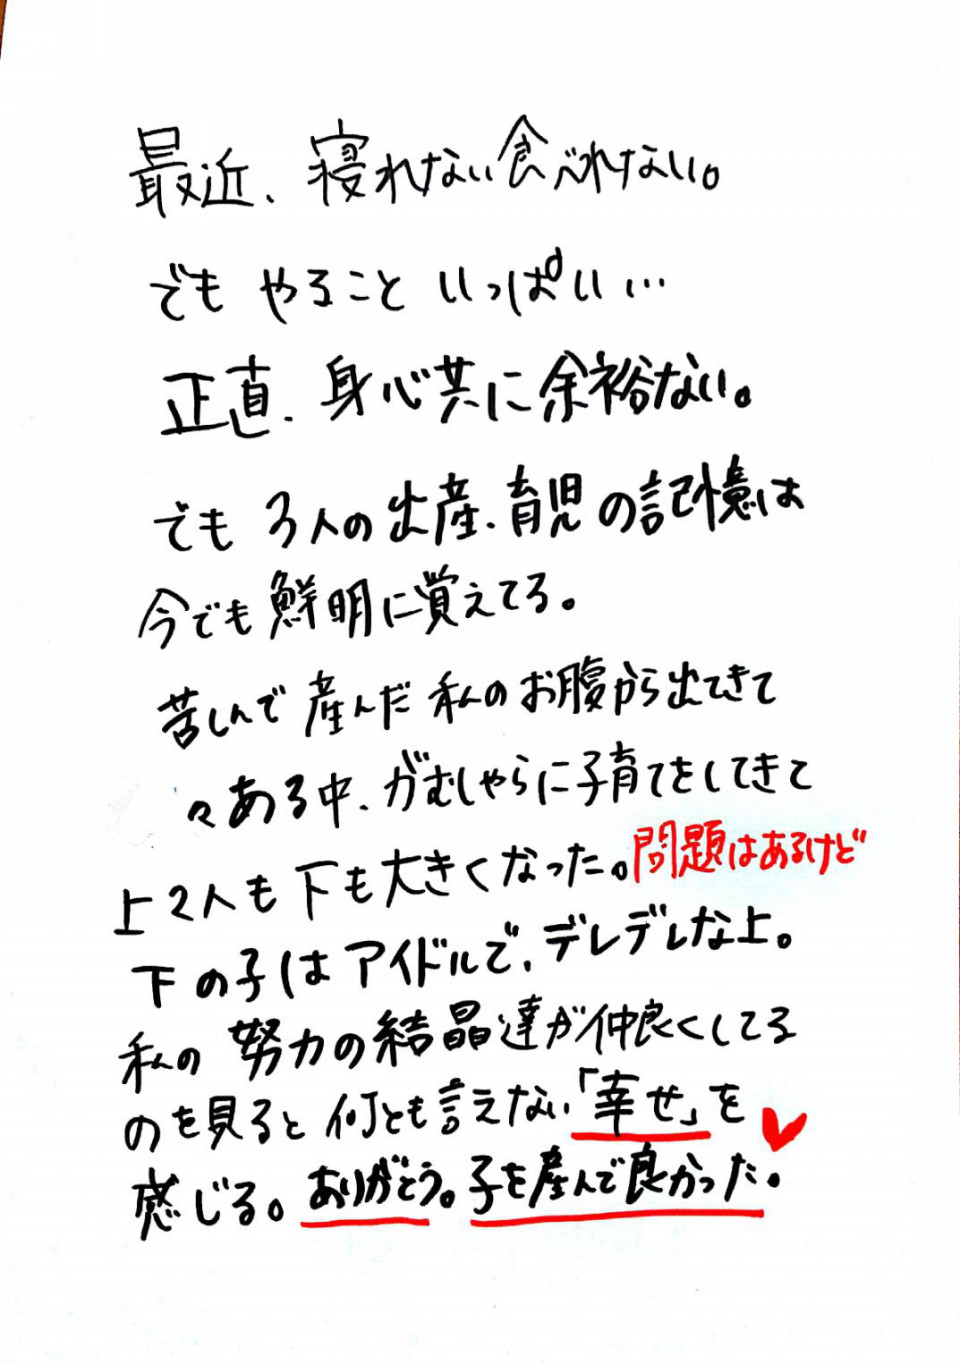 最近、寝れない食べれない。
でもやることいっぱい…
正直、身心共に余裕ない。
でも3人の出産、育児の記憶は
今でも鮮明に覚えてる。
苦しんで産んだ私のお腹から出てきて
々ある中、がむしゃらに子育てをしてきて
上2人も下も大きくなった。問題はあるけど
下の子はアイドルで、デレデレな上。
私の努力の結晶達が仲良くしてる
のを見ると何とも言えない「幸せ」を
感じる。ありがとう。子を産んで良かった。